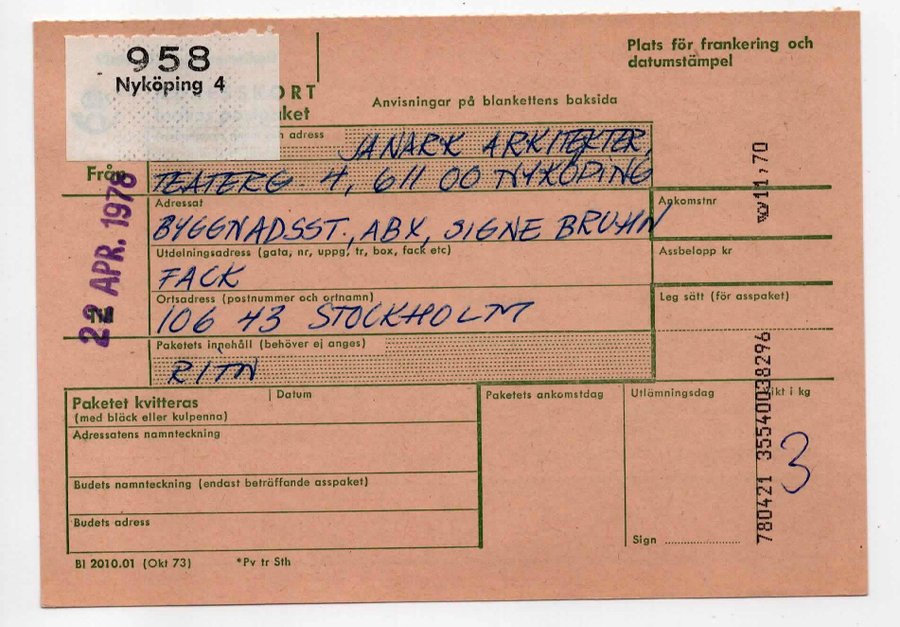 958
Nyköping 4
Plats för frankering och
datumstämpel
KORT
ket
Anvisningar på blankettens baksida
och adress
Från
JANARK ARKITEKTER,
TEATERG 4, 611 00 NYKÖPING
22 APR. 1978
Till
Adressat
BYGGNADSST., ABX, SIGNE BRUHN
Ankomstnr
11,70
Utdelningsadress (gata, nr, uppg, tr, box, fack etc)
FACK
Assbelopp kr
Ortsadress (postnummer och ortnamn)
106 43 STOCKHOLM
Leg sätt (för asspaket)
Paketets innehåll (behöver ej anges)
RITN
Paketet kvitteras
(med bläck eller kulpenna)
Datum
Paketets ankomstdag
Utlämningsdag
ikt i kg
3
780421 35540038296
Adressatens namnteckning
Budets namnteckning (endast beträffande asspaket)
Budets adress
Sign
BI 2010.01 (Okt 73)
*Pv tr Sth